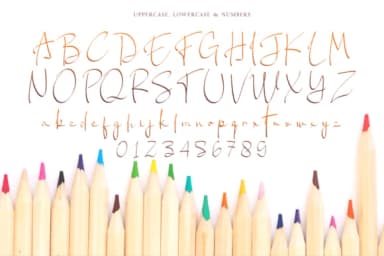 UPPERCASE, LOWERCASE & NUMBERS
ABCDEFGHIJKLM
NOPQRSTUVWXYZ
abcdefghijklmnopqrstuvwxyz
0123456789